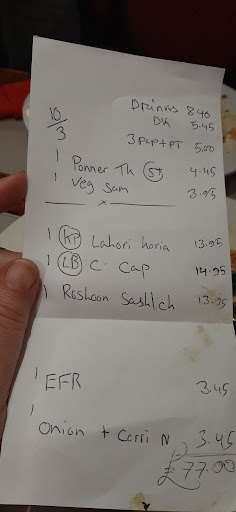 Drinks 8.40
DK 5.45
10/3
3 Pap + PT 5.00
1 Ponner Tk St 4.45
1 Veg Sam 3.95
x
1 KP Lahori haria 13.95
1 LB C. Cap 14.95
1 Roshoon Sashlch 13.95
1 EFR 3.45
1 Onion + Corri N 3.45
£77.00